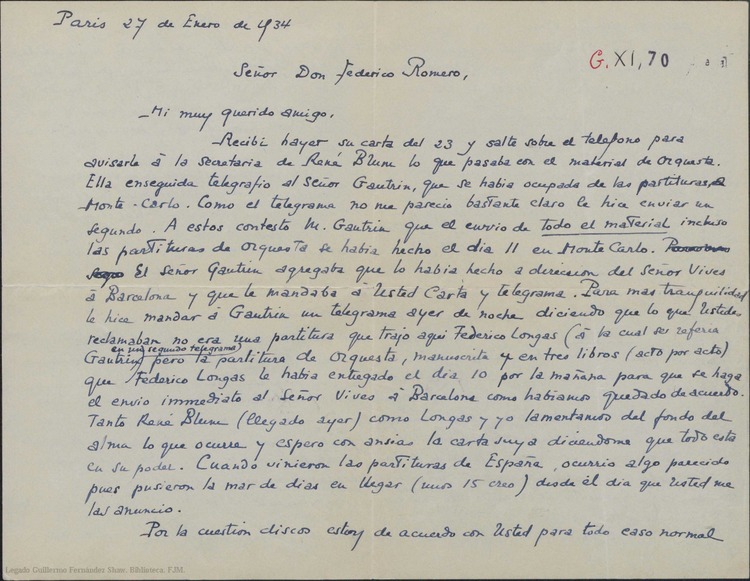 Paris 27 de Enero de 1934
G. XI, 70
Señor Don Federico Romero,
Mi muy querido amigo.
Recibi hayer su carta del 23 y salte sobre el telefono para
avisarle á la secretaria de René Blum lo que pasaba con el material de orquesta.
Ella enseguida telegrafio al Señor Gautrin, que se habia ocupada de las partituras, a
Monte-Carlo. Como el telegrama no me parecio bastante claro le hice enviar un
segundo. A estos contesto M. Gautrin que el envio de todo el material incluso
las partituras de orquesta se habia hecho el dia 11 en Monte Carlo.
El Señor Gautrin agregaba que lo habia hecho a direccion del Señor Vives
á Barcelona y que le mandaba á Usted Carta y telegrama. Para mas tranquilidad
le hice mandar á Gautrin un telegrama ayer de noche diciendo que lo que Ustedes
reclamaban no era una partitura que trajo aqui Federico Longas (á la cual se referia
Gautrin en un segundo telegrama) pero la partitura de orquesta, manuscrita y en tres libros (acto por acto)
que Federico Longas le habia entregado el dia 10 por la mañana para que se haga
el envio immediato al Señor Vives á Barcelona como habiamos quedado de acuerdo.
Tanto René Blum (llegado ayer) como Longas y yo lamentamos del fondo del
alma lo que ocurre y espero con ansias la carta suya diciendome que todo esta
en su poder. Cuando vinieron las partituras de España, ocurrio algo parecido
pues pusieron la mar de dias en llegar (unos 15 creo) desde el dia que Usted me
las anuncio.
Por la cuestion discos estoy de acuerdo con Usted para todo caso normal
Legado Guillermo Fernández Shaw. Biblioteca. FJM.